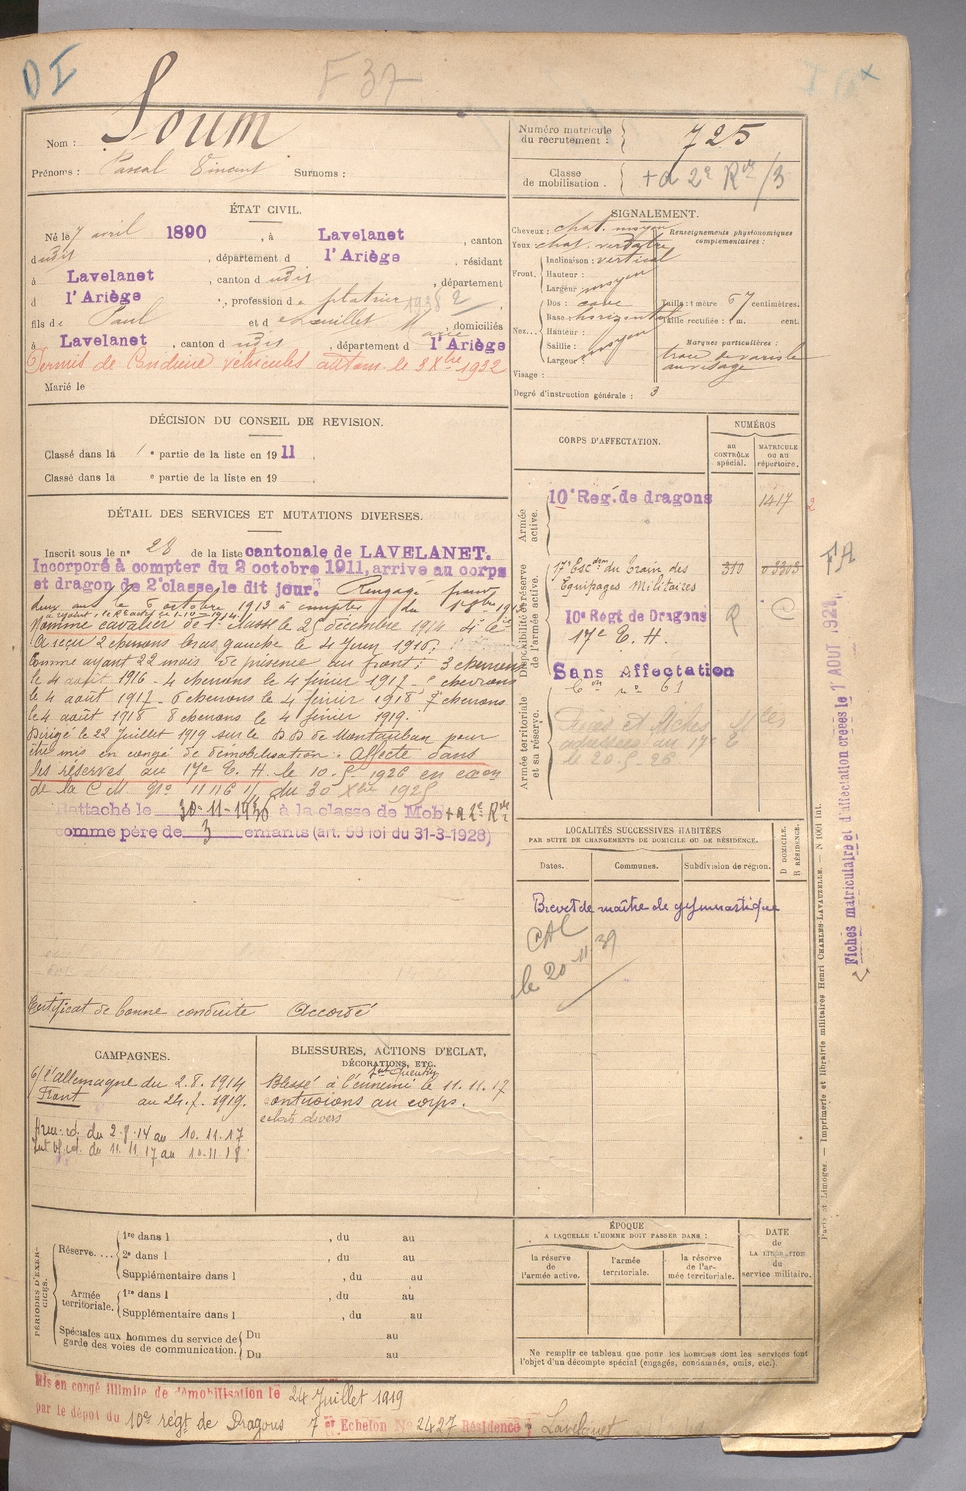 DI
F 37
Nom : Soum
Prénoms : Pascal Vincent Surnoms :
Numéro matricule du recrutement : 725
Classe de mobilisation . + a 2e Rve /3
ÉTAT CIVIL.
Né le 7 avril 1890 , à Lavelanet , canton
dudit , département d l'Ariège , résidant
à Lavelanet , canton dudit , département
d l'Ariège , profession de platrier 1938 2
fils de Paul et de Marie , domiciliés
à Lavelanet , canton dudit , département d l'Ariège
Permis de Conduire véhicules autom. le 3 Xbre 1932
Marié le
SIGNALEMENT.
Cheveux : chat. moyen
Yeux chat. verdatre
Renseignements physionomiques complémentaires :
Front. Inclinaison : vertical
Hauteur :
Largeur moyen
Nez... Dos : cave
Base : horizontal
Hauteur :
Saillie :
Largeur : moyen
Taille : 1 mètre 67 centimètres.
Taille rectifiée : 1 m. cent.
Marques particulières :
trace de variole
au visage
Visage :
Degré d'instruction générale : 3
DÉCISION DU CONSEIL DE REVISION.
Classé dans la 1 e partie de la liste en 1911 .
Classé dans la e partie de la liste en 19 .
DÉTAIL DES SERVICES ET MUTATIONS DIVERSES.
Inscrit sous le n° 28 de la liste cantonale de LAVELANET.
Incorporé à compter du 2 octobre 1911, arrivé au corps
et dragon de 2e classe, le dit jour. Rengagé pour
deux ans le 6 octobre 1913 à compter du 1er 8bre 1913
Nommé cavalier de 1e classe le 25 décembre 1914
A reçu 2 chevrons bras gauche le 4 Juin 1916.
Comme ayant 22 mois de présence au front : 3 chevrons
le 4 août 1916 - 4 chevrons le 4 février 1917 - 5 chevrons
le 4 août 1917 - 6 chevrons le 4 février 1918 7 chevrons
le 4 août 1918 8 chevrons le 4 février 1919.
Dirigé le 22 Juillet 1919 sur le DD de Montauban pour
être mis en congé de démobilisation. Affecté dans
les réserves au 17e E. H. le 10-5-1926 en exen
de la C M. No 11116 1/1 du 30 Xbre 1925
Rattaché le 30-11-1930 à la classe de Mob + a 2e Rve
comme père de 3 enfants (art. 58 loi du 31-3-1928)
Certificat de bonne conduite Accordé
CORPS D'AFFECTATION.
NUMÉROS
au CONTRÔLE spécial.
MATRICULE ou au répertoire.
Armée active.
10e Rég. de dragons 1417 2
Disponibilité et réserve de l'armée active.
17e Escdron du Train des 310 03303
Equipages Militaires
10e Régt de Dragons
17e E. H.
Sans Affectation
Armée territoriale et sa réserve.
Con no 61
adressées au 17e E
le 20-5-26
FA
Fiches matriculaire et d'affectation créées le 1er AOUT 1928.
LOCALITÉS SUCCESSIVES HABITÉES
PAR SUITE DE CHANGEMENTS DE DOMICILE OU DE RÉSIDENCE.
Dates. Communes. Subdivision de région.
D DOMICILE.
R RÉSIDENCE.
Brevet de maître de gymnastique
CAL
le 20-11 39
CAMPAGNES.
c/ l'allemagne du 2.8.1914
Front au 24.7.1919.
du 2-8-14 au 10.11.17
du 11 11 17 au 10-11-18
BLESSURES, ACTIONS D'ÉCLAT,
DÉCORATIONS, ETC.
Blessé à l'ennemi le 11.11.17
contusions au corps.
éclats divers
PÉRIODES D'EXERCICES.
Réserve.... 1re dans l , du au
2e dans l , du au
Supplémentaire dans l , du au
Armée territoriale. 1re dans l , du au
Supplémentaire dans l , du au
Spéciales aux hommes du service de garde des voies de communication. Du au
Du au
ÉPOQUE
A LAQUELLE L'HOMME DOIT PASSER DANS :
la réserve de l'armée active.
l'armée territoriale.
la réserve de l'armée territoriale.
DATE de LA LIBÉRATION du service militaire.
Ne remplir ce tableau que pour les hommes dont les services font
l'objet d'un décompte spécial (engagés, condamnés, omis, etc.).
Paris et Limoges. — Imprimerie et librairie militaires Henri CHARLES-LAVAUZELLE. — N 1001 int.
Mis en congé illimité de démobilisation le 24 Juillet 1919
par le dépôt du 10e régt de Dragons 7 Echelon No 2427 Résidence : Lavelanet